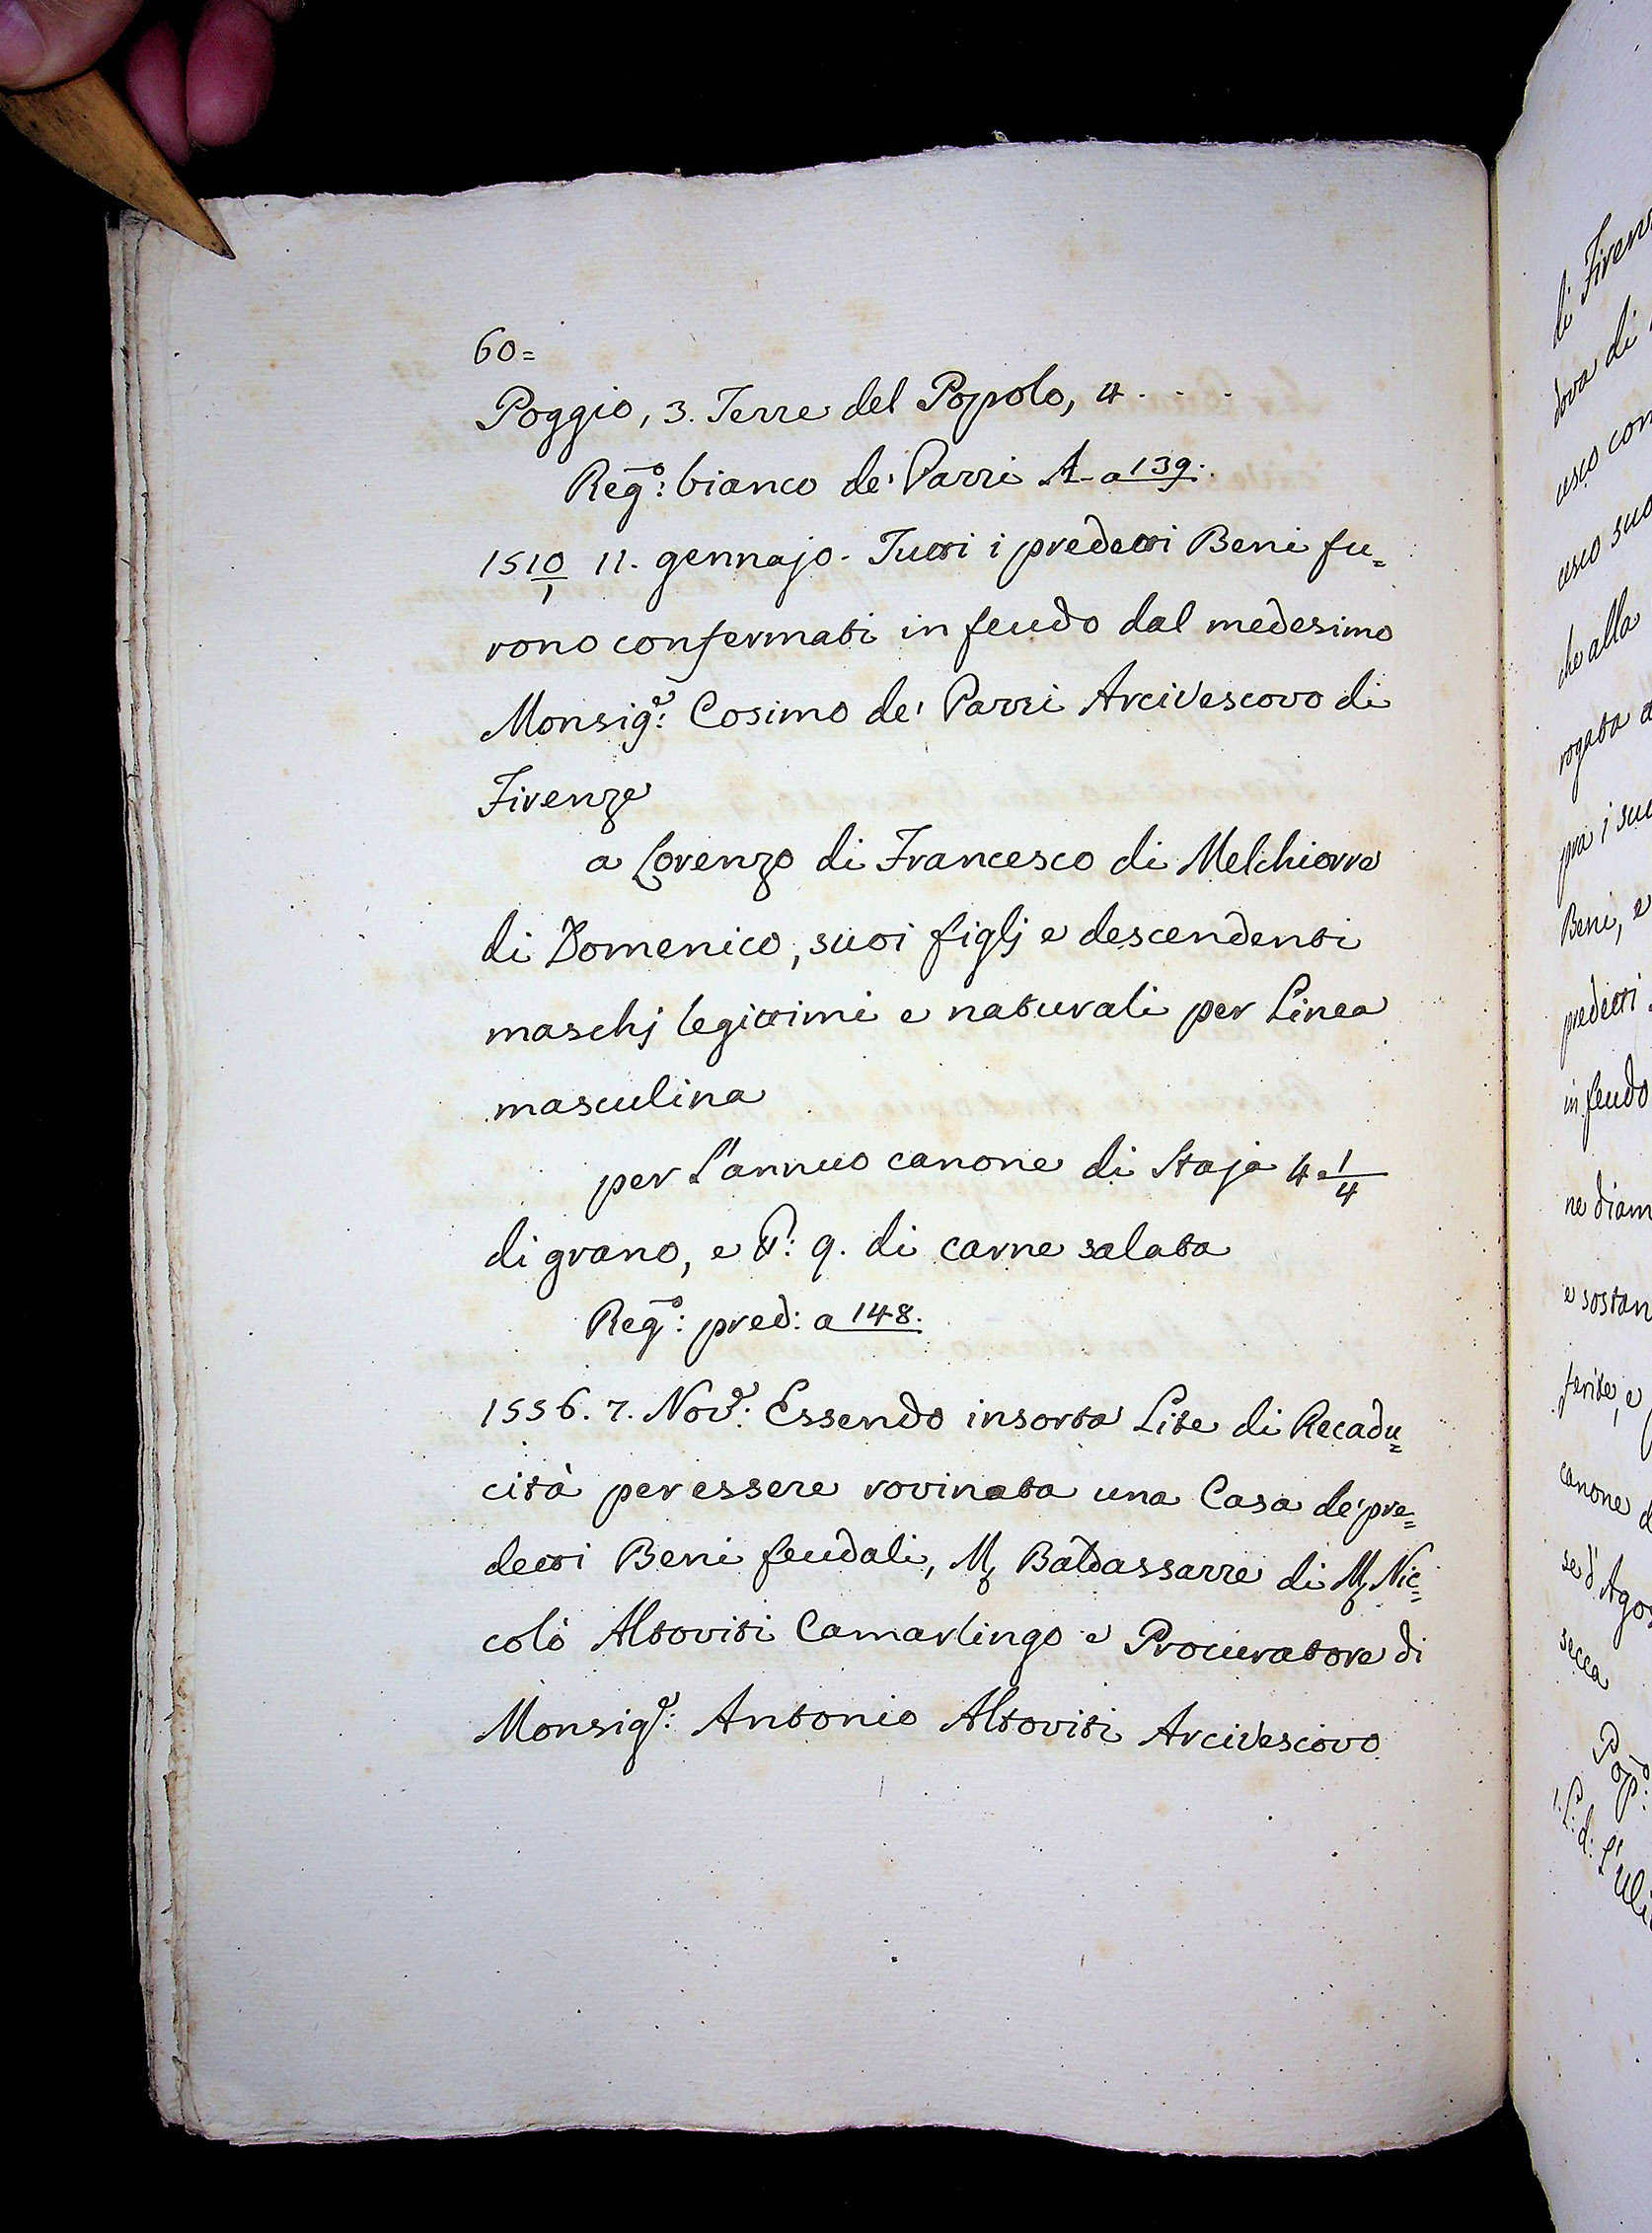 60=
Poggio, 3. Terre del Popolo, 4 . . .
Reg.º: bianco de' Pazzi A- a 139:.
1510/1 11. gennajo. Tutti i predetti Beni fu=
rono confermati in feudo dal medesimo
Monsig.e: Cosimo de' Pazzi Arcivescovo di
Firenze
a Lorenzo di Francesco di Melchiorre
di Domenico, suoi figlj e descendenti
maschj legittimi e naturali per Linea
masculina
per l'annuo canone di Staja 4 1/4
di grano, e 9. di carne salata
Reg.º: pred: a 148.
1556. 7. Nov.e: Essendo insorta Lite di Recadu=
cità per essere rovinata una Casa de' pre=
detti Beni feudali, M. Baldassarre di M. Nic=
colò Altoviti Camarlingo e Procuratore di
Monsig.e: Antonio Altoviti Arcivescovo
di Firen
dova di
usco con
usco suo
che alla
rogata a
pra i suo
Beni, e
predetti
in feudo
ne diam
e sostan
ferite, e
canone d
se d'Agos
secca